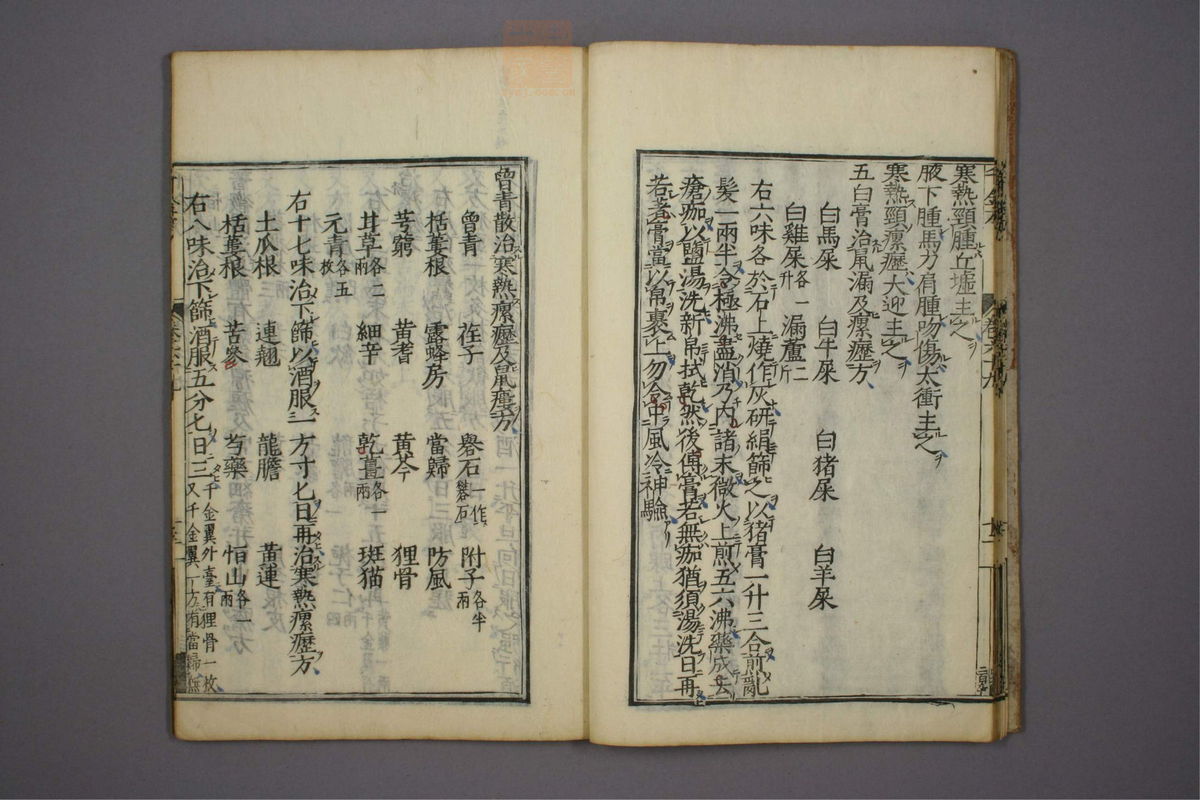 寒熱頸腫丘墟主之
腋下腫馬刀肩腫吻傷太衝主之
寒熱頸瘰癧大迎主之
五白膏治鼠漏及瘰癧方
白馬屎 白牛屎 白猪屎 白羊屎
白雞屎各一升 漏蘆二斤
右六味各於石上燒作灰研絹篩之以猪膏一升三合煎亂
髮一兩半令極沸盡消乃内諸末微火上煎五六沸藥成去
瘡痂以鹽湯洗新帛拭乾然後傅膏若無痂猶須湯洗日再
若著膏當以帛裹上勿令中風冷神驗
曾青散治寒熱瘰癧及鼠瘻方
曾青 荏子 礜石一作礬石 附子各半兩
栝蔞根 露蜂房 當歸 防風
芎藭 黄耆 黄芩 狸骨
甘草各二兩 細辛 乾薑各一兩 斑猫
元青各五枚
右十七味治下篩以酒服一方寸匕日再治寒熱瘰癧方
土瓜根 連翹 龍膽 黄連
栝蔞根 苦參 芍藥 恒山各一兩
右八味治下篩酒服五分匕日三千金翼外臺有狸骨一枚又千金翼一方有當歸無